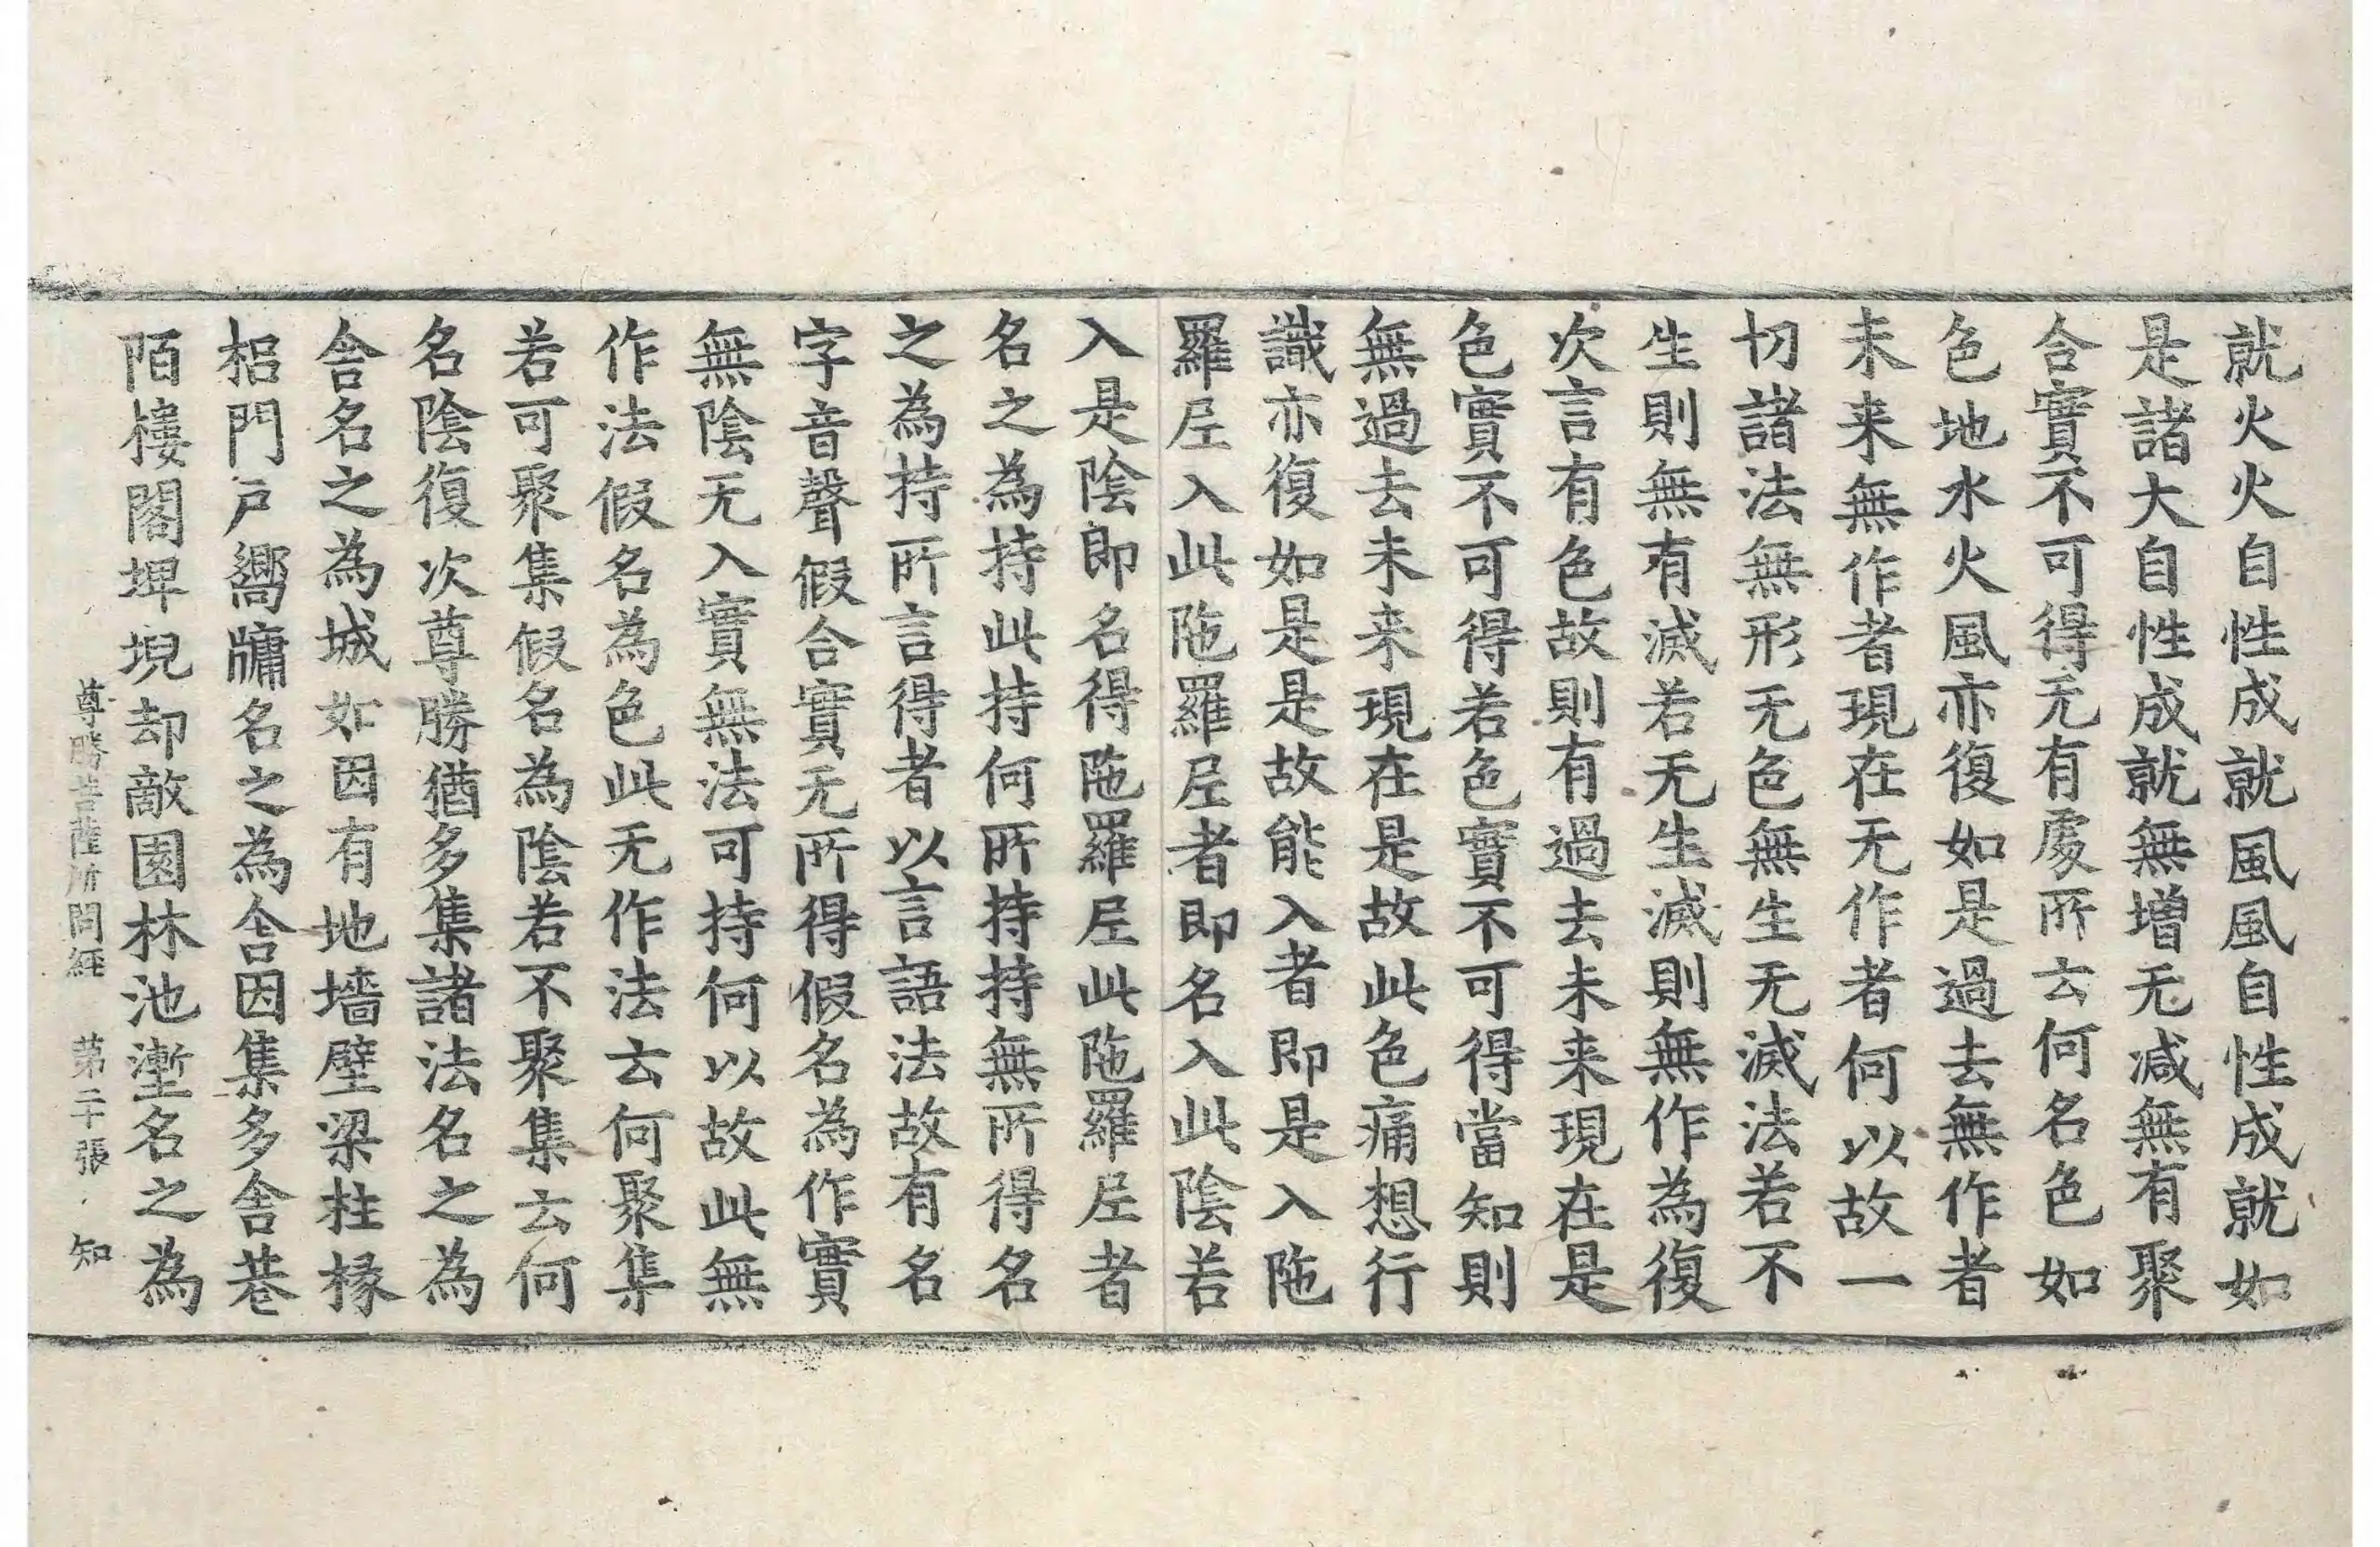 就火火自性成就風風自性成就如
是諸大自性成就無增无减無有聚
合實不可得无有處所云何名色如
色地水火風亦復如是過去無作者
未来無作者現在无作者何以故一
切諸法無形无色無生无滅法若不
生則無有滅若无生滅則無作為復
次言有色故則有過去未来現在是
色實不可得若色實不可得當知則
無過去未来現在是故此色痛想行
識亦復如是是故能入者即是入陁
羅𡰱入此陁羅𡰱者即名入此陰若
入是陰即名得陁羅𡰱此陁羅𡰱者
名之為持此持何所持持無所得名
之為持所言得者以言語法故有名
字音聲假合實无所得假名為作實
無陰无入實無法可持何以故此無
作法假名為色此无作法云何聚集
若可聚集假名為陰若不聚集云何
名陰復次尊勝猶多集諸法名之為
舎名之為城如因有地墻壁梁柱椽
梠門戸嚮牗名之為舎因集多舎巷
陌樓閣埤堄却敵園林池壍名之為
尊勝菩薩所問經 第二十張 知